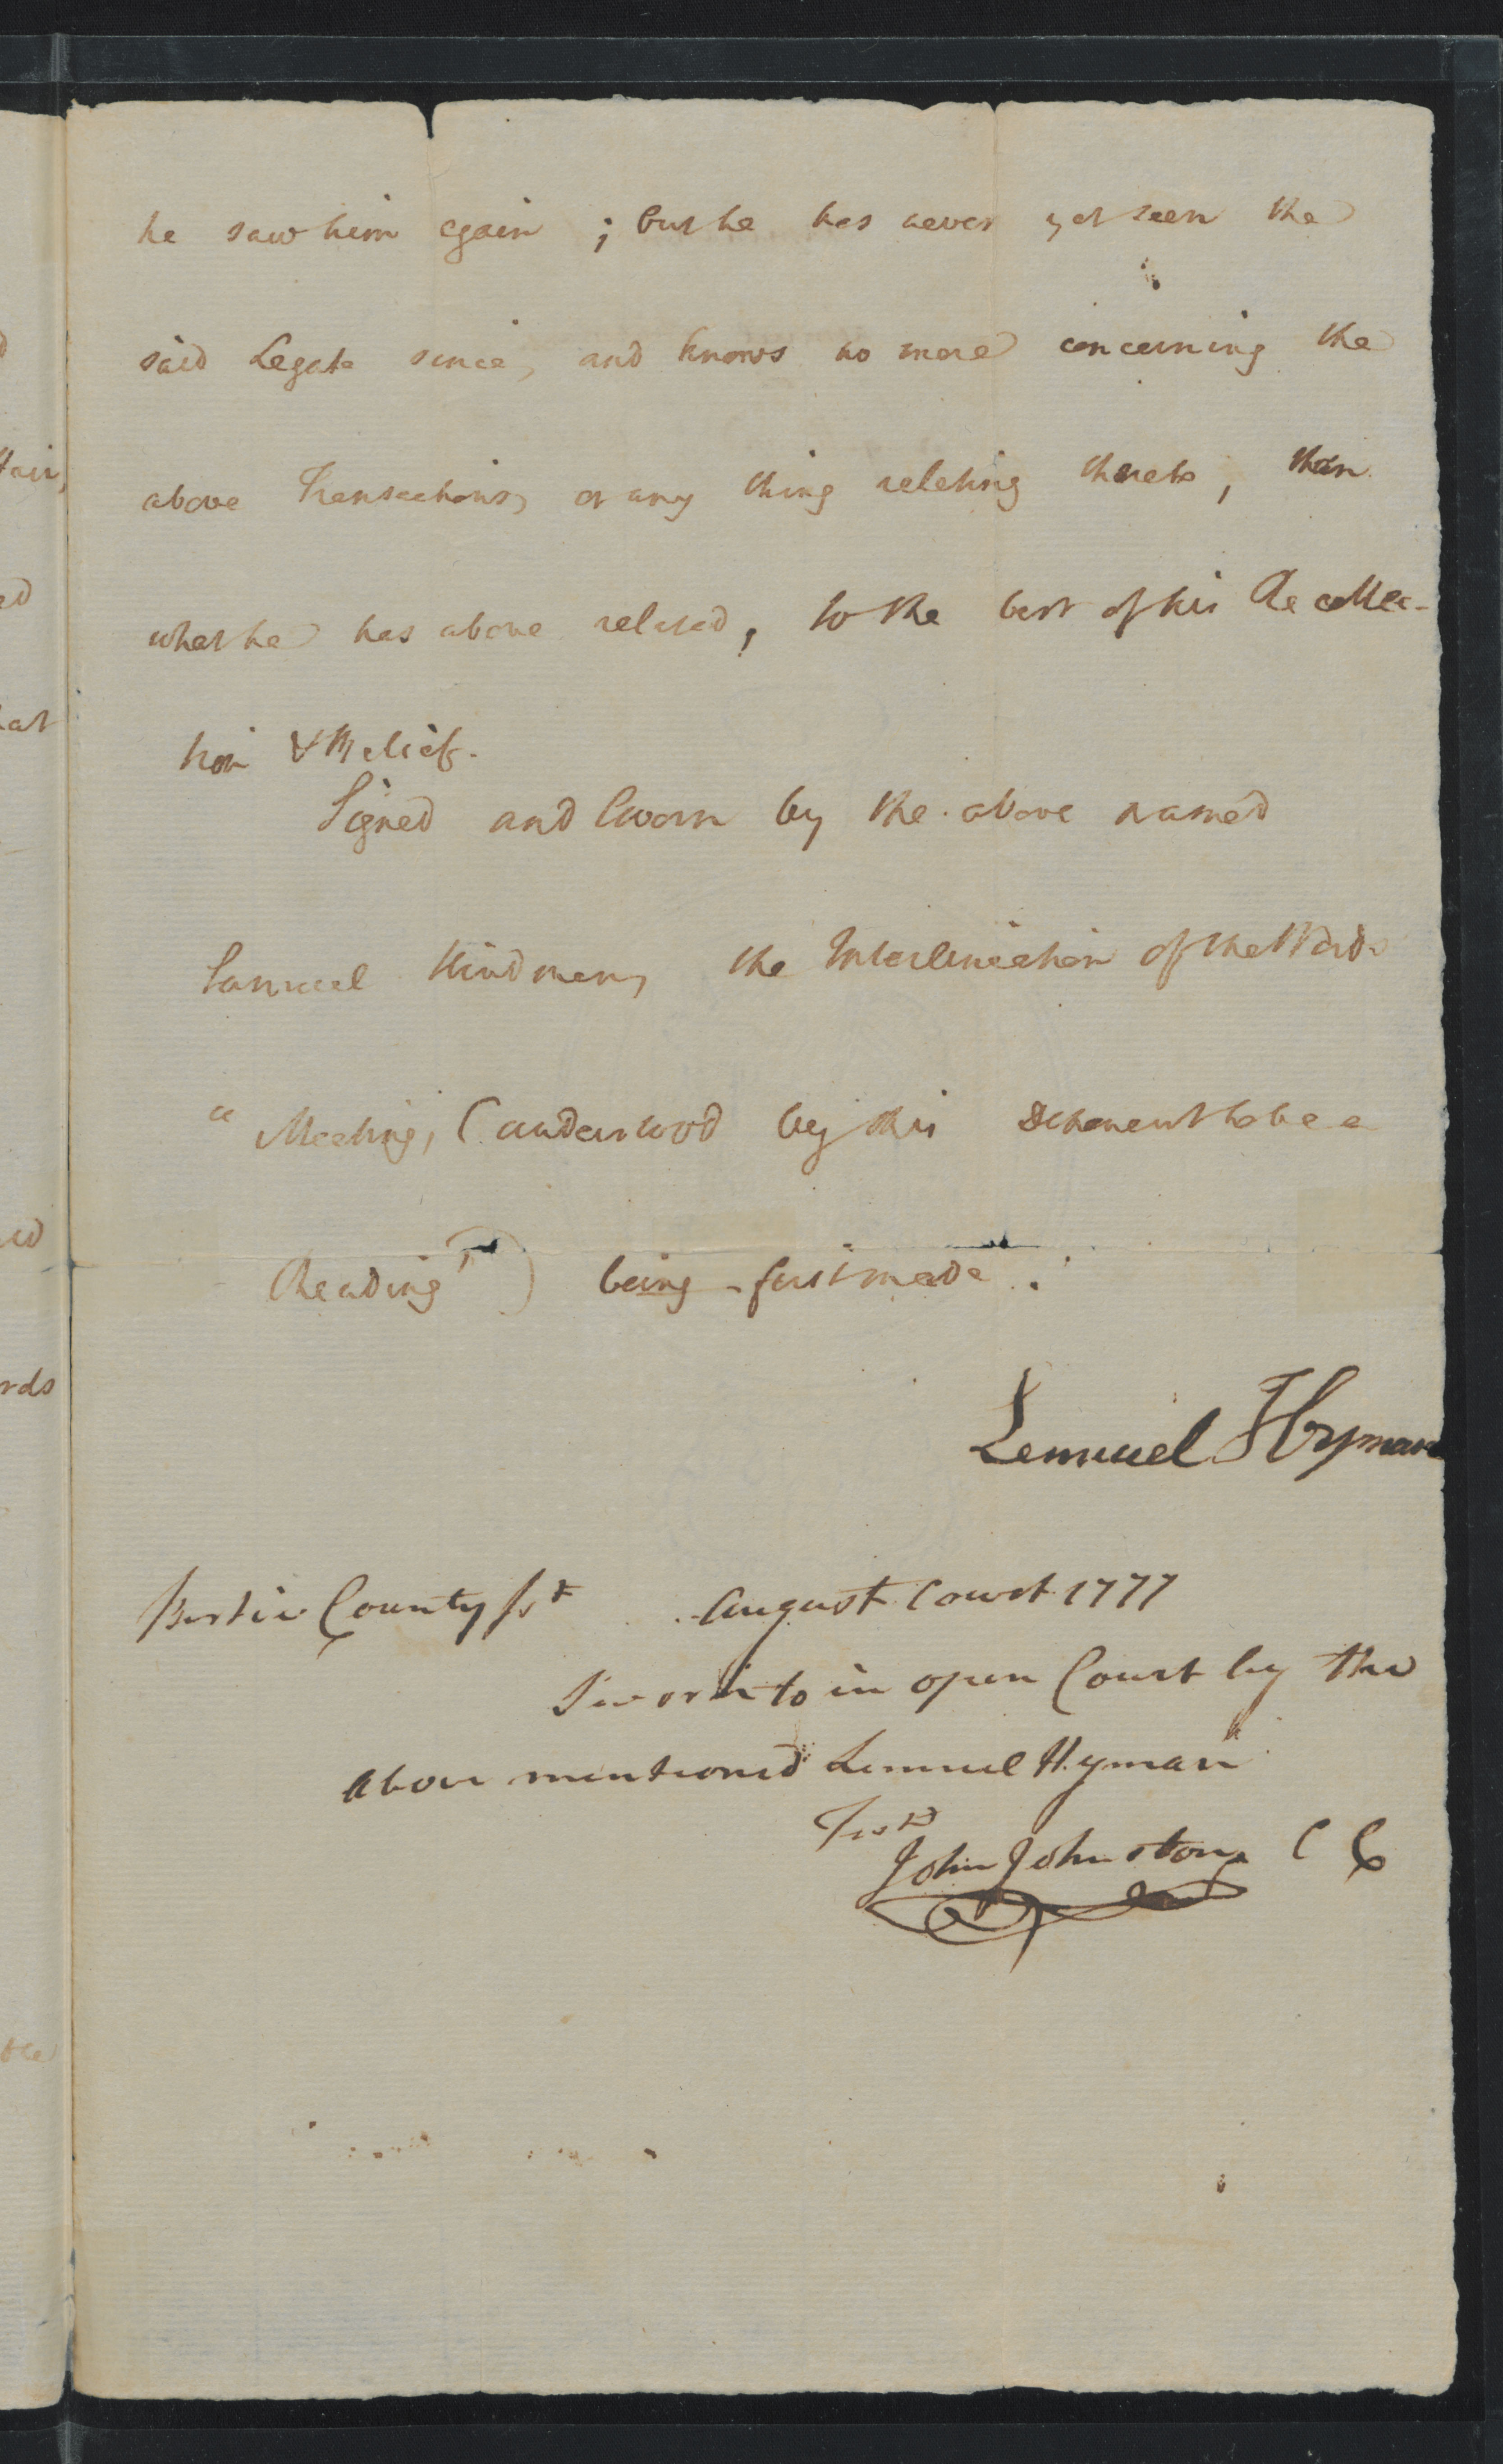 he saw him again ; but he has never yet seen the
said Legate since, and knows no more concerning the
above Transactions, or any thing relating thereto, than
what he has above related, to the best of his Recollec-
tion & Belief.
Signed and Sworn by the above named
the Interlineation of the Words
" Meeting, (understood by this Deponent to be a
Reading") being first made .
Lemuel Hyman
Bertie County Sst August Court 1777
Sworn to in open Court by the
above mentioned Lemuel Hyman
Test
John Johnston C C
tair,
ed
hat
ed
rds